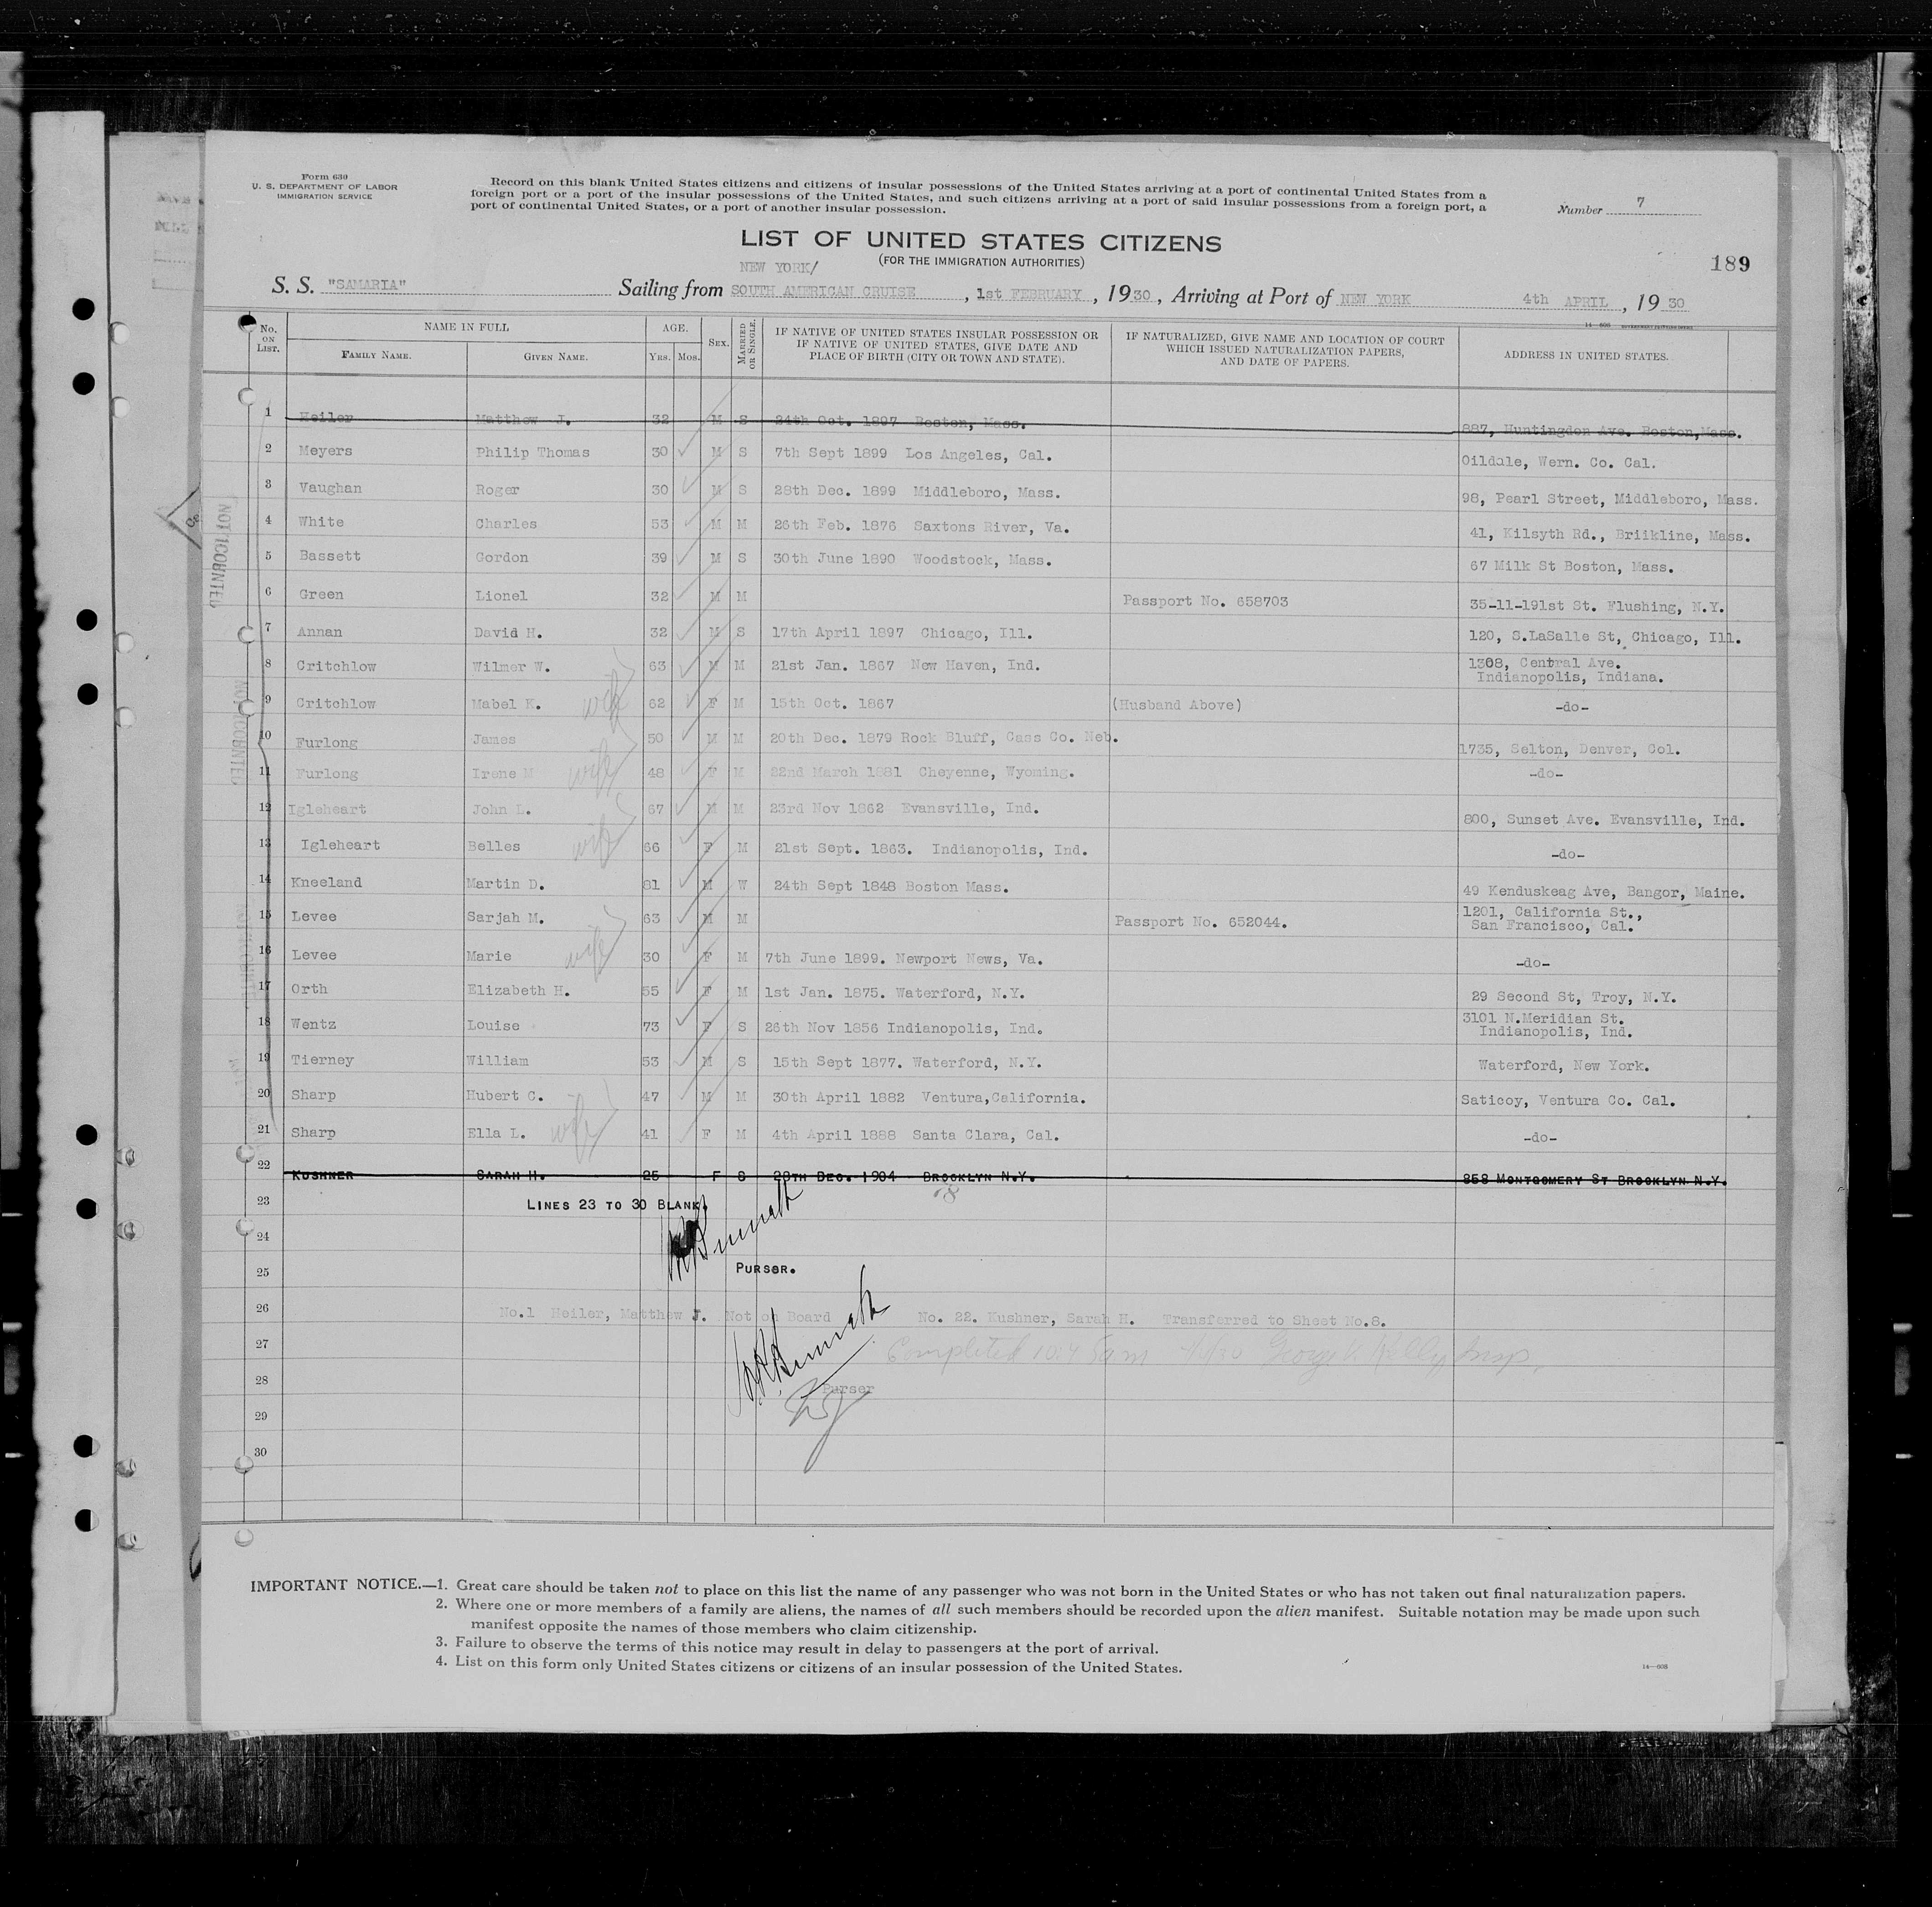 Form 630
U. S. DEPARTMENT OF LABOR
IMMIGRATION SERVICE
Record on this blank United States citizens and citizens of insular possessions of the United States arriving at a port of continental United States from a
foreign port or a port of the insular possessions of the United States, and such citizens arriving at a port of said insular possessions from a foreign port, a
port of continental United States, or a port of another insular possession.
Number 7
LIST OF UNITED STATES CITIZENS
(FOR THE IMMIGRATION AUTHORITIES)
189
NEW YORK/
S. S. "SAMARIA" Sailing from SOUTH AMERICAN CRUISE, 1st FEBRUARY, 1930, Arriving at Port of NEW YORK 4th APRIL, 1930
14—608 GOVERNMENT PRINTING OFFICE
No. ON LIST. NAME IN FULL FAMILY NAME. GIVEN NAME. AGE. YRS. MOS. SEX. MARRIED OR SINGLE. IF NATIVE OF UNITED STATES INSULAR POSSESSION OR IF NATIVE OF UNITED STATES, GIVE DATE AND PLACE OF BIRTH (CITY OR TOWN AND STATE). IF NATURALIZED, GIVE NAME AND LOCATION OF COURT WHICH ISSUED NATURALIZATION PAPERS, AND DATE OF PAPERS. ADDRESS IN UNITED STATES.
1 Heiler Matthew J. 32 M S 24th Oct. 1897 Boston, Mass. 887, Huntingdon Ave. Boston, Mass.
2 Meyers Philip Thomas 30 M S 7th Sept 1899 Los Angeles, Cal. Oildale, Wern. Co. Cal.
3 Vaughan Roger 30 M S 28th Dec. 1899 Middleboro, Mass. 98, Pearl Street, Middleboro, Mass.
4 White Charles 53 M M 26th Feb. 1876 Saxtons River, Va. 41, Kilsyth Rd., Briikline, Mass.
5 Bassett Gordon 39 M S 30th June 1890 Woodstock, Mass. 67 Milk St Boston, Mass.
6 Green Lionel 32 M M Passport No. 658703 35-11-191st St. Flushing, N.Y.
7 Annan David H. 32 M S 17th April 1897 Chicago, Ill. 120, S.LaSalle St, Chicago, Ill.
8 Critchlow Wilmer W. 63 M M 21st Jan. 1867 New Haven, Ind. 1308, Central Ave.
Indianopolis, Indiana.
9 Critchlow Mabel K. wife 62 F M 15th Oct. 1867 (Husband Above) -do-
10 Furlong James 50 M M 20th Dec. 1879 Rock Bluff, Cass Co. Neb. 1735, Selton, Denver, Col.
11 Furlong Irene M wife 48 F M 22nd March 1881 Cheyenne, Wyoming. -do-
12 Igleheart John L. 67 M M 23rd Nov 1862 Evansville, Ind. 800, Sunset Ave. Evansville, Ind.
13 Igleheart Belles wife 66 F M 21st Sept. 1863. Indianopolis, Ind. -do-
14 Kneeland Martin D. 81 M W 24th Sept 1848 Boston Mass. 49 Kenduskeag Ave, Bangor, Maine.
15 Levee Sarjah M. 63 M M Passport No. 652044. 1201, California St.,
San Francisco, Cal.
16 Levee Marie wife 30 F M 7th June 1899. Newport News, Va. -do-
17 Orth Elizabeth H. 55 F M 1st Jan. 1875. Waterford, N.Y. 29 Second St, Troy, N.Y.
18 Wentz Louise 73 F S 26th Nov 1856 Indianopolis, Ind. 3101 N.Meridian St.
Indianopolis, Ind.
19 Tierney William 53 M S 15th Sept 1877. Waterford, N.Y. Waterford, New York.
20 Sharp Hubert C. 47 M M 30th April 1882 Ventura, California. Saticoy, Ventura Co. Cal.
21 Sharp Ella L. wife 41 F M 4th April 1888 Santa Clara, Cal. -do-
22 KUSHNER SARAH H. 25 F S 28TH DEC. 1904 BROOKLYN N.Y. 858 MONTGOMERY ST BROOKLYN N.Y.
23 LINES 23 TO 30 BLANK.
24
25 PURSER.
26 No.1 Heiler, Matthew J. Not on Board No. 22. Kushner, Sarah H. Transferred to Sheet No.8.
27 Completed George V. Kelly, Insp.
28 Purser
29
30
NOT COUNTED
NOT COUNTED
IMPORTANT NOTICE.—1. Great care should be taken not to place on this list the name of any passenger who was not born in the United States or who has not taken out final naturalization papers.
2. Where one or more members of a family are aliens, the names of all such members should be recorded upon the alien manifest. Suitable notation may be made upon such
manifest opposite the names of those members who claim citizenship.
3. Failure to observe the terms of this notice may result in delay to passengers at the port of arrival.
4. List on this form only United States citizens or citizens of an insular possession of the United States.
14—608